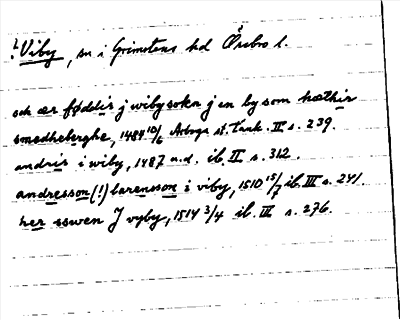 ? Viby, sn i Grimstens hd Örebro l.
och ær føddir j wiby sokn j en by som hæthir
smedheberghe, 1484 10/6 Arboga st. Tänk. II s. 239.
andris i wiby, 1487 u.d. ib. II s. 312.
andresson (!) larensson i viby, 1510 15/7 ib. III s. 241.
her sswen J vyby, 1514 3/4 ib. III s. 276.